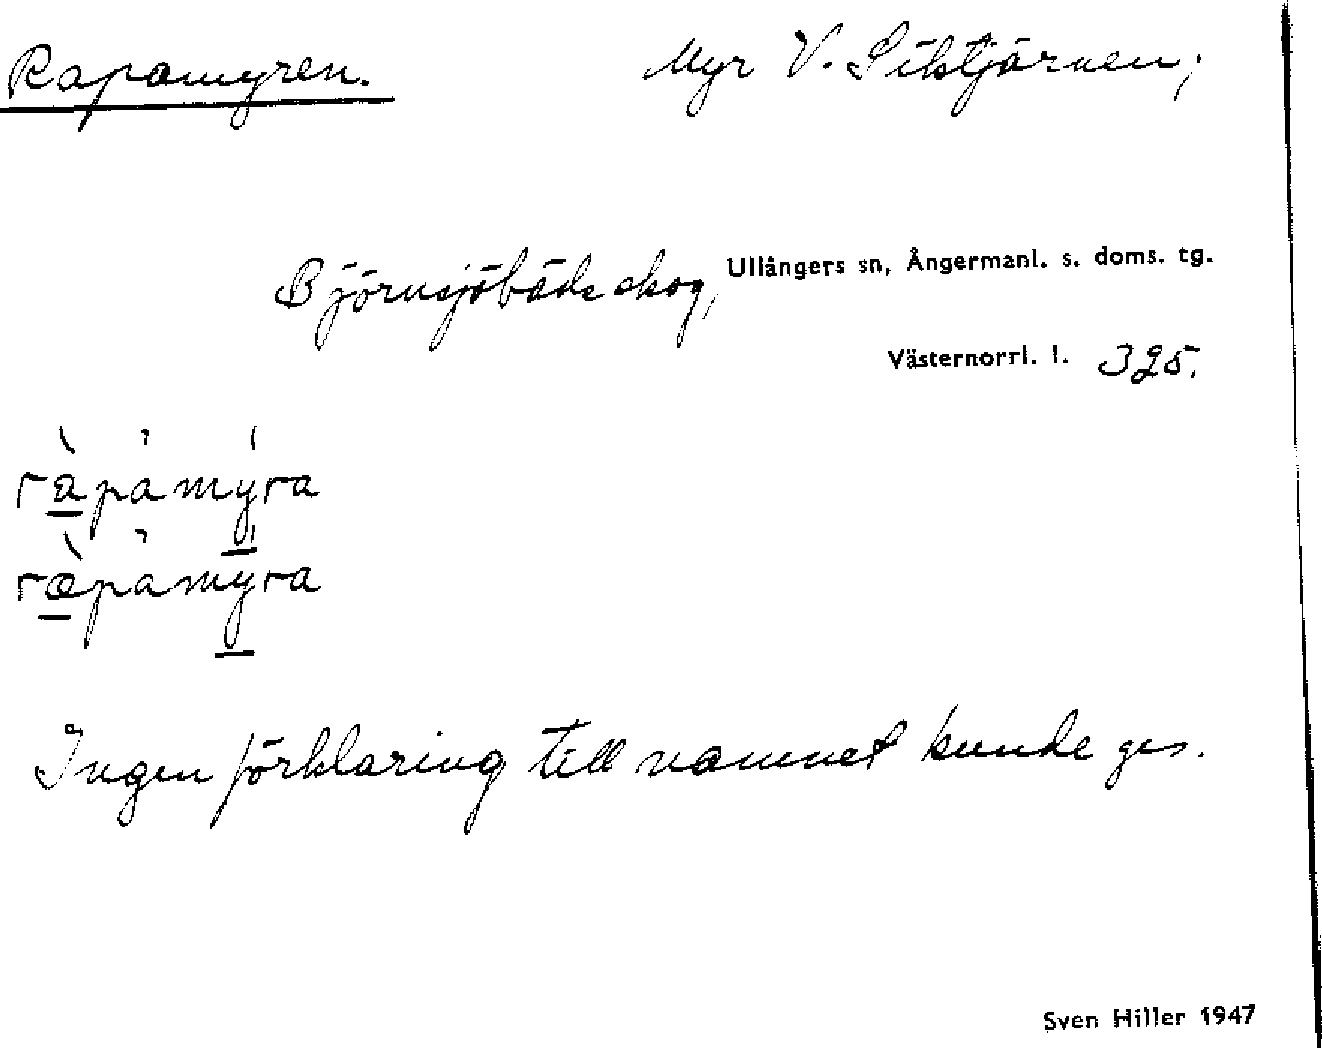 Rapamyren. Myr V. Siktjärnen;
Björnsjöbäcks skog, Ullångers sn, Ångermanl. s. doms. tg.
Västernorrl. l. 325.
ràpamýra
ræ̀pamýra
Ingen förklaring till namnet kunde ges.
Sven Hiller 1947